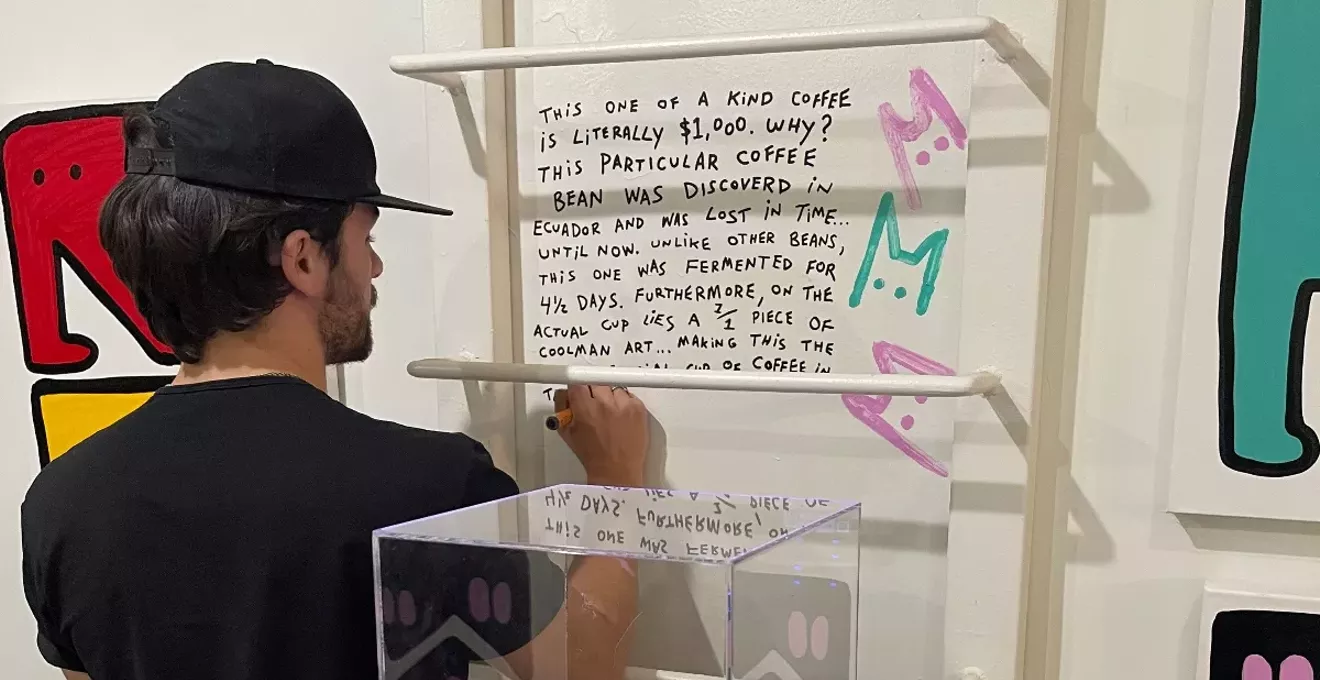 THiS ONE OF A KiND COFFEE
iS LiTERALLY $1,000. WHY?
THiS PARTICULAR COFFEE
BEAN WAS DISCOVERD iN
ECUADOR AND WAS LOST iN TiME...
UNTiL NOW. UNLiKE OTHER BEANS,
THiS ONE WAS FERMENTED FOR
4½ DAYS. FURTHERMORE, ON THE
ACTUAL CUP LiES A 1/1 PIECE OF
COOLMAN ART... MAKING THIS THE
CUP OF COFFEE iN